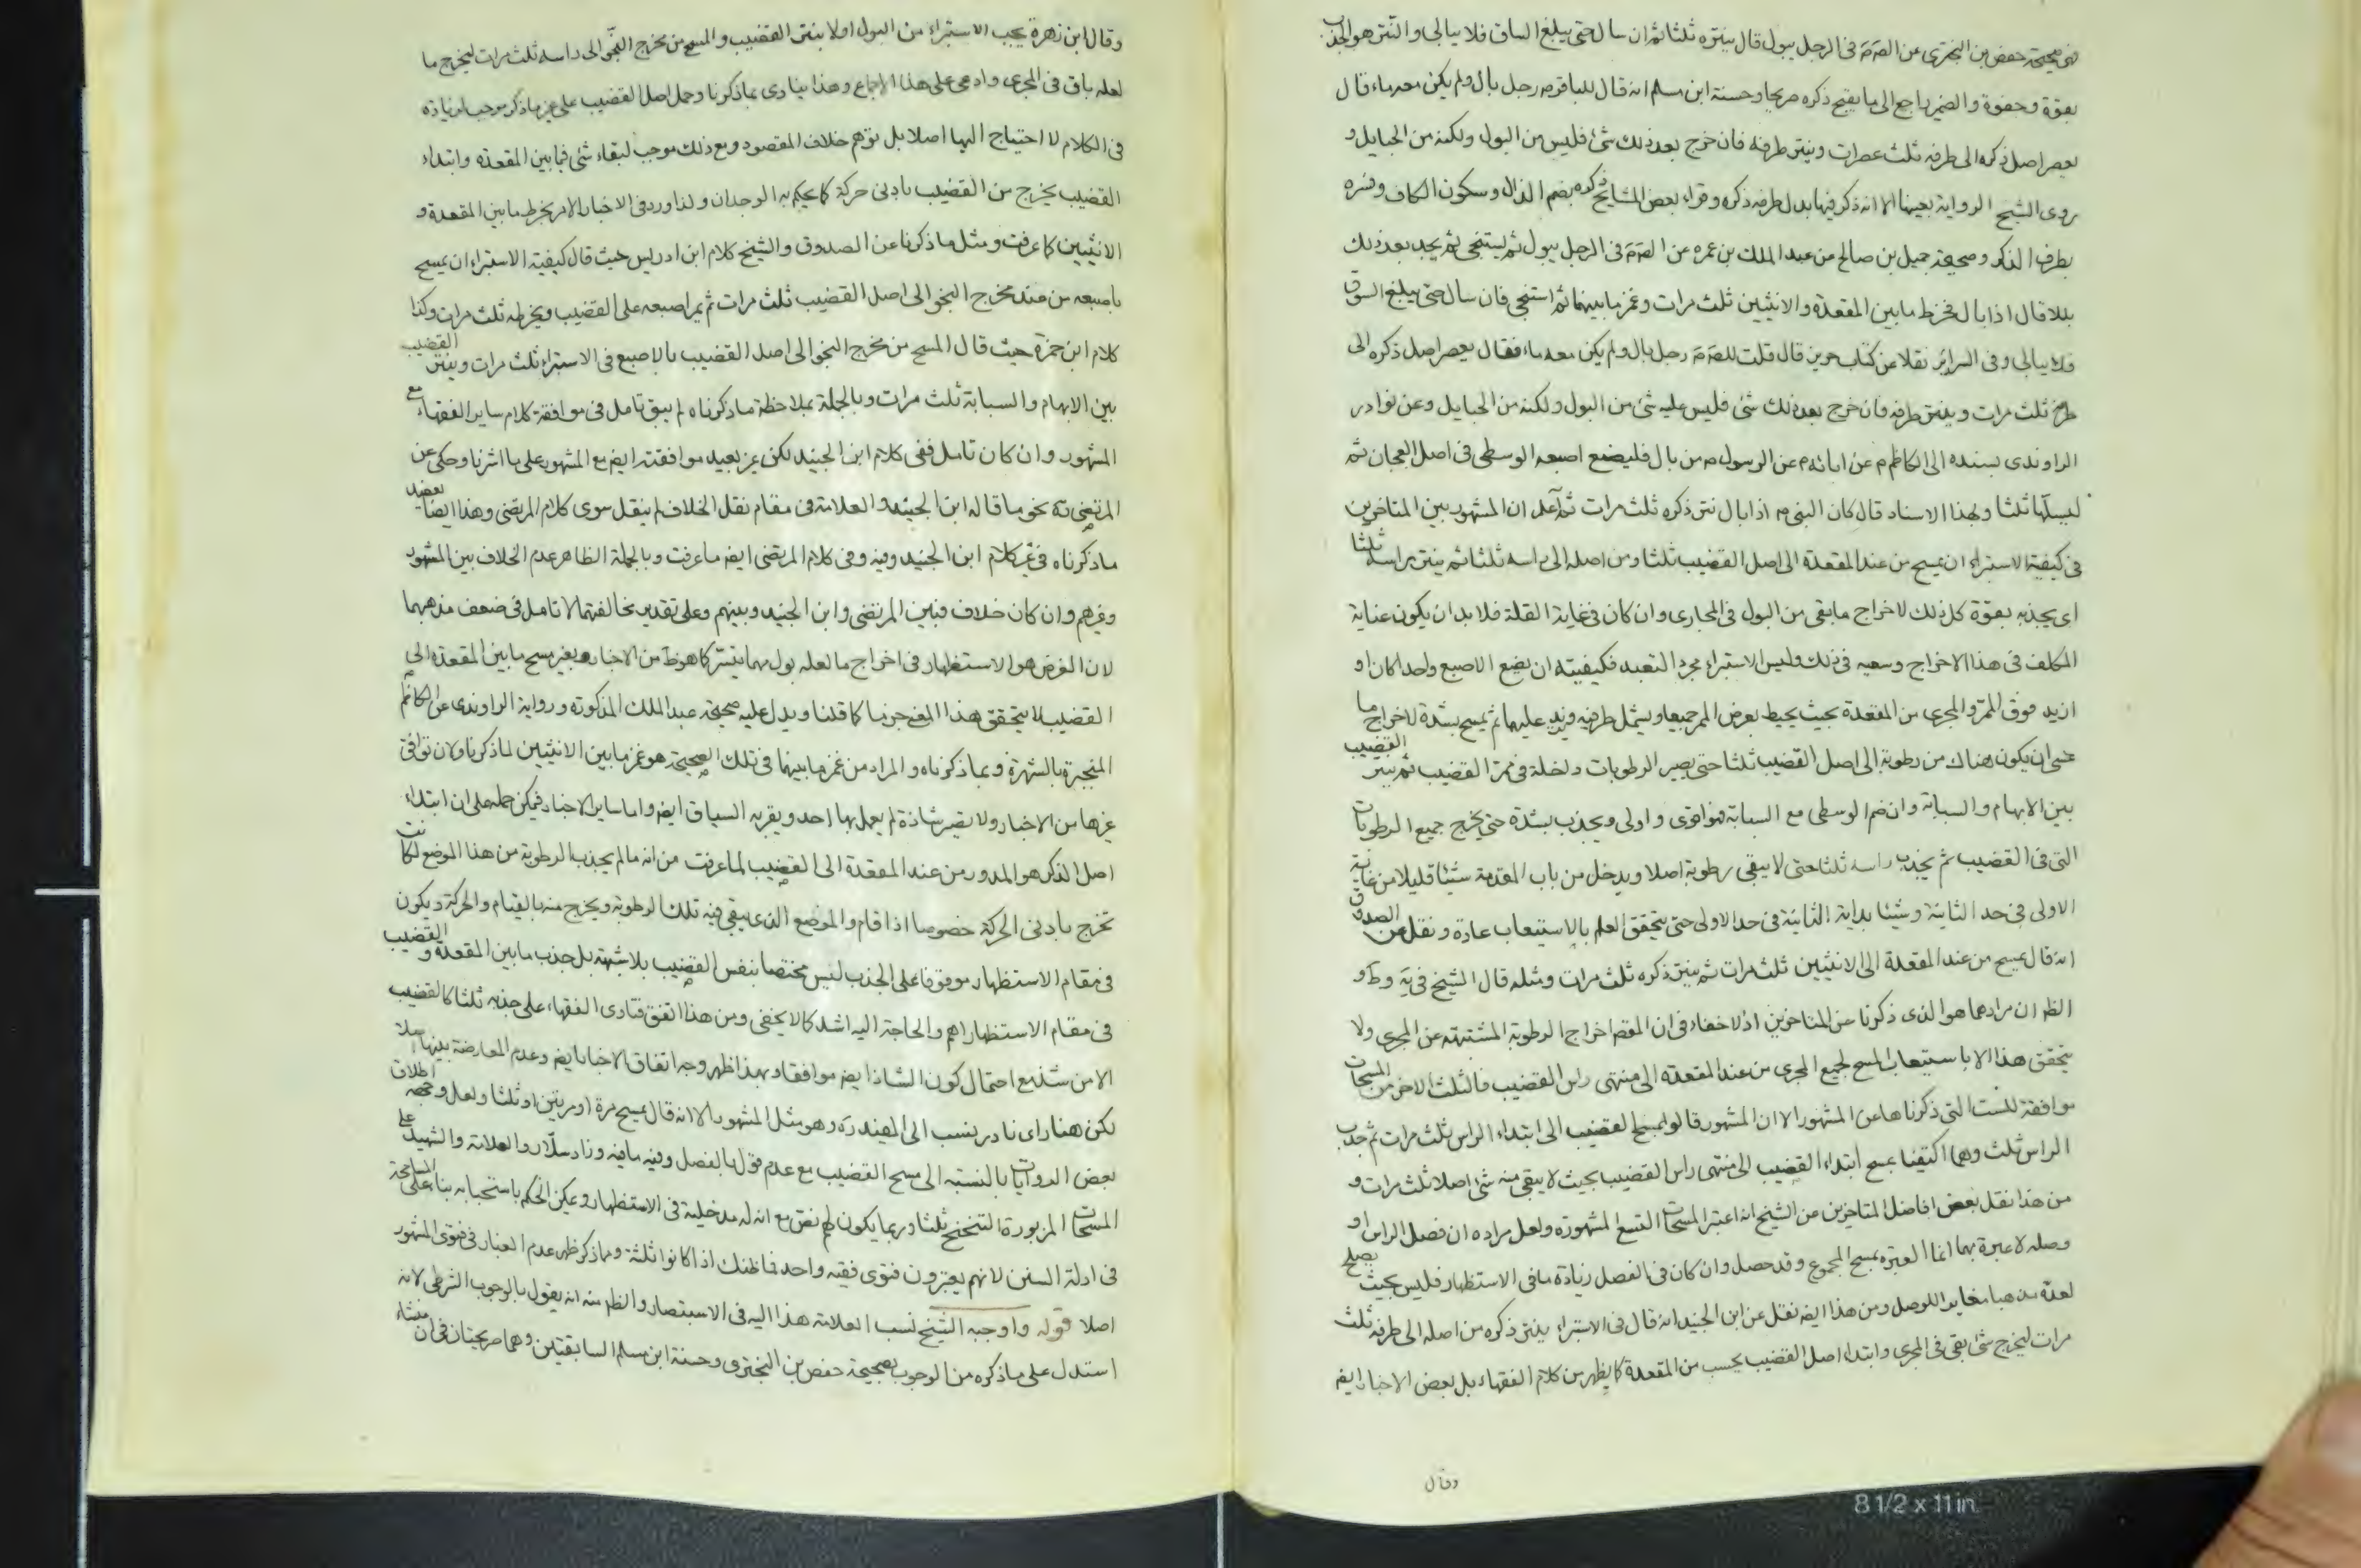 ففي صحيحة حفص بن البختري عن الصّ مَ في الرجل يبول قال ينتره ثلثا ثم ان سال حتى يبلغ الساق فلا يبالي والنتر هو الجذب
بقوة وجفوة والضمير راجع الى ما يقبح ذكره صريحا وحسنة ابن مسلم انه قال للباقر م رجل بال ولم يكن معه ماء قال
يعصر اصل ذكره الى طرفه ثلث عصرات وينتر طرفه فان خرج بعد ذلك شئ فليس من البول ولكنه من الحبايل و
روى الشيخ الرواية بعينها الا انه ذكر فيها بدل طرفه ذكره وقراء بعض المشايخ ذكره بضم الذال وسكون الكاف وفسره
بطرف الذكر وصحيحة جميل بن صالح عن عبد الملك بن عمره عن الصّ مَ في الرجل يبول ثم يستنجي ثم يجد بعد ذلك
بللا قال اذا بال فخرط ما بين المقعدة والانثيين ثلث مرات وغمز ما بينهما ثم استنجى فان سال حتى يبلغ السوق
فلا يبالي وفي السرائر نقلا عن كتاب حريز قال قلت للصّ مَ رجل بال ولم يكن معه ماء فقال يعصر اصل ذكره الى
طرفه ثلث مرات وينتر طرفه فان خرج بعد ذلك شئ فليس عليه شئ من البول ولكنه من الحبايل وعن نوادر
الراوندي بسنده الى الكاظم م عن ابائه م عن الرسول ص من بال فليضع اصبعه الوسطى في اصل العجان ثم
ليسلّها ثلثا وبهذا الاسناد قال كان النبي ص اذا بال نتر ذكره ثلث مرات ثم اعلم ان المشهور بين المتاخرين
في كيفية الاستبراء ان يمسح من عند المقعدة الى اصل القضيب ثلثا ومن اصله الى راسه ثلثا ثم ينتر براسه ثلثا
اي يجذبه بقوة كل ذلك لاخراج ما بقي من البول في المجاري وان كان في غاية القلة فلا بد ان يكون عناية
المكلف في هذا الاخراج وسعيه في ذلك وليس الاستبراء مجرد التعبد فكيفيته ان يضع الاصبع واحدا كان او
ازيد فوق الممر والمجرى من المقعدة بحيث يحيط بعرض الممر جميعا ويشمل طرفيه ويزيد عليهما ثم يمسح بشدة لاخراج ما
عسى ان يكون هناك من رطوبة الى اصل القضيب ثلثا حتى يصير الرطوبات داخلة في ممر القضيب ثم ينتر القضيب
بين الابهام والسبابة وان ضم الوسطى مع السبابة فهو اقوى واولى ويجذب بشدة حتى يخرج جميع الرطوبات
التي في القضيب ثم يجذب راسه ثلثا حتى لا يبقى رطوبة اصلا ويدخل من باب المقدمة شيئا قليلا من غاية
الاولى في حد الثانية وشيئا بداية الثانية في حد الاولى حتى يتحقق العلم بالاستيعاب عادة ونقل عن الصدوق
انه قال يمسح من عند المقعدة الى الانثيين ثلث مرات ثم ينتر ذكره ثلث مرات ومثله قال الشيخ في يَة وط و
الظ ان مرادهما هو الذي ذكرنا عن المتاخرين اذ لا خفاء في ان المقص اخراج الرطوبة المشتبهة عن المجرى ولا
يتحقق هذا الا باستيعاب المسح لجميع المجرى من عند المقعدة الى منتهى راس القضيب فالثلث الاخر من المسحات
موافقة للست التي ذكرناها عن المشهور الا ان المشهور قالوا بمسح القضيب الى ابتداء الراس ثلث مرات ثم جذب
الراس ثلث وهما اكتفيا بمسح ابتداء القضيب الى منتهى راس القضيب بحيث لا يبقى منه شئ اصلا ثلث مرات و
من هذا نقل بعض افاضل المتاخرين عن الشيخ انه اعتبر المسحات التسع المشهورة ولعل مراده ان فصل الراس او
وصله لا عبرة بهما انما العبرة بمسح المجموع وقد حصل وان كان في الفصل زيادة ما في الاستظهار فليس بحيث يصلح
لعده مذهبا مغايرا للوصل ومن هذا ايض نقل عن ابن الجنيد انه قال في الاستبراء ينتر ذكره من اصله الى طرفه ثلث
مرات ليخرج شئ بقي في المجرى وابتداء اصل القضيب يحسب من المقعدة كما يظهر من كلام الفقهاء بل بعض الاخبار ايض
وقال
وقال ابن زهرة يجب الاستبراء من البول اولا بنتر القضيب والمسح من مخرج النجو الى راسه ثلث مرات ليخرج ما
لعله باق في المجرى وادعى على هذا الاجماع وهذا ينادي بما ذكرنا وحمل اصل القضيب على غير ما ذكر موجب لزيادة
في الكلام لا احتياج اليها اصلا بل توهم خلاف المقصود ومع ذلك موجب لبقاء شئ فيما بين المقعدة وابتداء
القضيب يخرج من القضيب بادنى حركة كما يحكم به الوجدان ولذا ورد في الاخبار الامر بخرط ما بين المقعدة و
الانثيين كما عرفت ومثل ما ذكرنا عن الصدوق والشيخ كلام ابن ادريس حيث قال كيفية الاستبراء ان يمسح
باصبعه من عند مخرج النجو الى اصل القضيب ثلث مرات ثم يمر اصبعه على القضيب ويخرطه ثلث مرات وكذا
كلام ابن حمزة حيث قال المسح من مخرج النجو الى اصل القضيب بالاصبع في الاستبراء ثلث مرات وينتر القضيب
بين الابهام والسبابة ثلث مرات وبالجملة بملاحظة ما ذكرناه لم يبق تامل في موافقة كلام ساير الفقهاء مع
المشهور وان كان تامل ففي كلام ابن الجنيد لكن غير بعيد موافقته ايض مع المشهور على ما اشرنا وحكي عن
المرتضى ره نحو ما قاله ابن الجنيد والعلامة في مقام نقل الخلاف لم ينقل سوى كلام المرتضى وهذا ايضا يعضد
ما ذكرناه في غير كلام ابن الجنيد وفيه وفي كلام المرتضى ايض ما عرفت وبالجملة الظاهر عدم الخلاف بين المشهور
وغيرهم وان كان خلاف فبين المرتضى وابن الجنيد وبينهم وعلى تقدير مخالفتهما لا تامل في ضعف مذهبهما
لان الغرض هو الاستظهار في اخراج ما لعله بول مهما يتيسّر كما هو ظ من الاخبار وبغير مسح ما بين المقعدة الى
القضيب لا يتحقق هذا المعنى جزما كما قلنا ويدل عليه صحيحة عبد الملك المذكورة ورواية الراوندي عن الكاظم
المنجبرة بالشهرة وبما ذكرناه والمراد من غمز ما بينهما في تلك الصحيحة هو غمز ما بين الانثيين لما ذكرنا ولان توافق
غيرها من الاخبار ولا يصير شاذة لم يعمل بها احد ويقربه السياق ايض واما ساير الاخبار فيمكن حمله على ان ابتداء
اصل الذكر هو المدور من عند المقعدة الى القضيب لما عرفت من انه ما لم يجذب الرطوبة من هذا الموضع لكانت
تخرج بادنى الحركة خصوصا اذا قام والموضع الذي يبقى فيه تلك الرطوبة ويخرج منه بالقيام والحركة ويكون
في مقام الاستظهار موقوفا على الجذب ليس مختصا بنفس القضيب بلا شبهة بل جذب ما بين المقعدة والقضيب
في مقام الاستظهار اهم والحاجة اليه اشد كما لا يخفى ومن هذا اتفق فتاوى الفقهاء على جذبه ثلثا كالقضيب
الا من شذ مع احتمال كون الشاذ ايض موافقا وبهذا ظهر وجه اتفاق الاخبار ايض وعدم المعارضة بينها اصلا
لكن هنا راي نادر ينسب الى المفيد ره وهو مثل المشهور الا انه قال يمسح مرة او مرتين او ثلثا ولعل وجهه اطلاق
بعض الروايات بالنسبة الى مسح القضيب مع عدم قول بالفصل وفيه ما فيه وزاد سلّار والعلامة والشهيد على
المسحات المزبورة التنحنح ثلثا وربما يكون لهم نص مع انه له مدخلية في الاستظهار ويمكن الحكم باستحبابه بناء على المسامحة
في ادلة السنن لانهم يعتبرون فتوى فقيه واحد فما ظنك اذا كانوا ثلثة ومما ذكر ظهر عدم الغبار في فتوى المشهور
اصلا قوله واوجبه الشيخ نسب العلامة هذا اليه في الاستبصار والظ منه انه يقول بالوجوب الشرطي لانه
استدل على ما ذكره من الوجوب بصحيحة حفص بن البختري وحسنة ابن مسلم السابقتين وهما صريحتان في ان منشاء